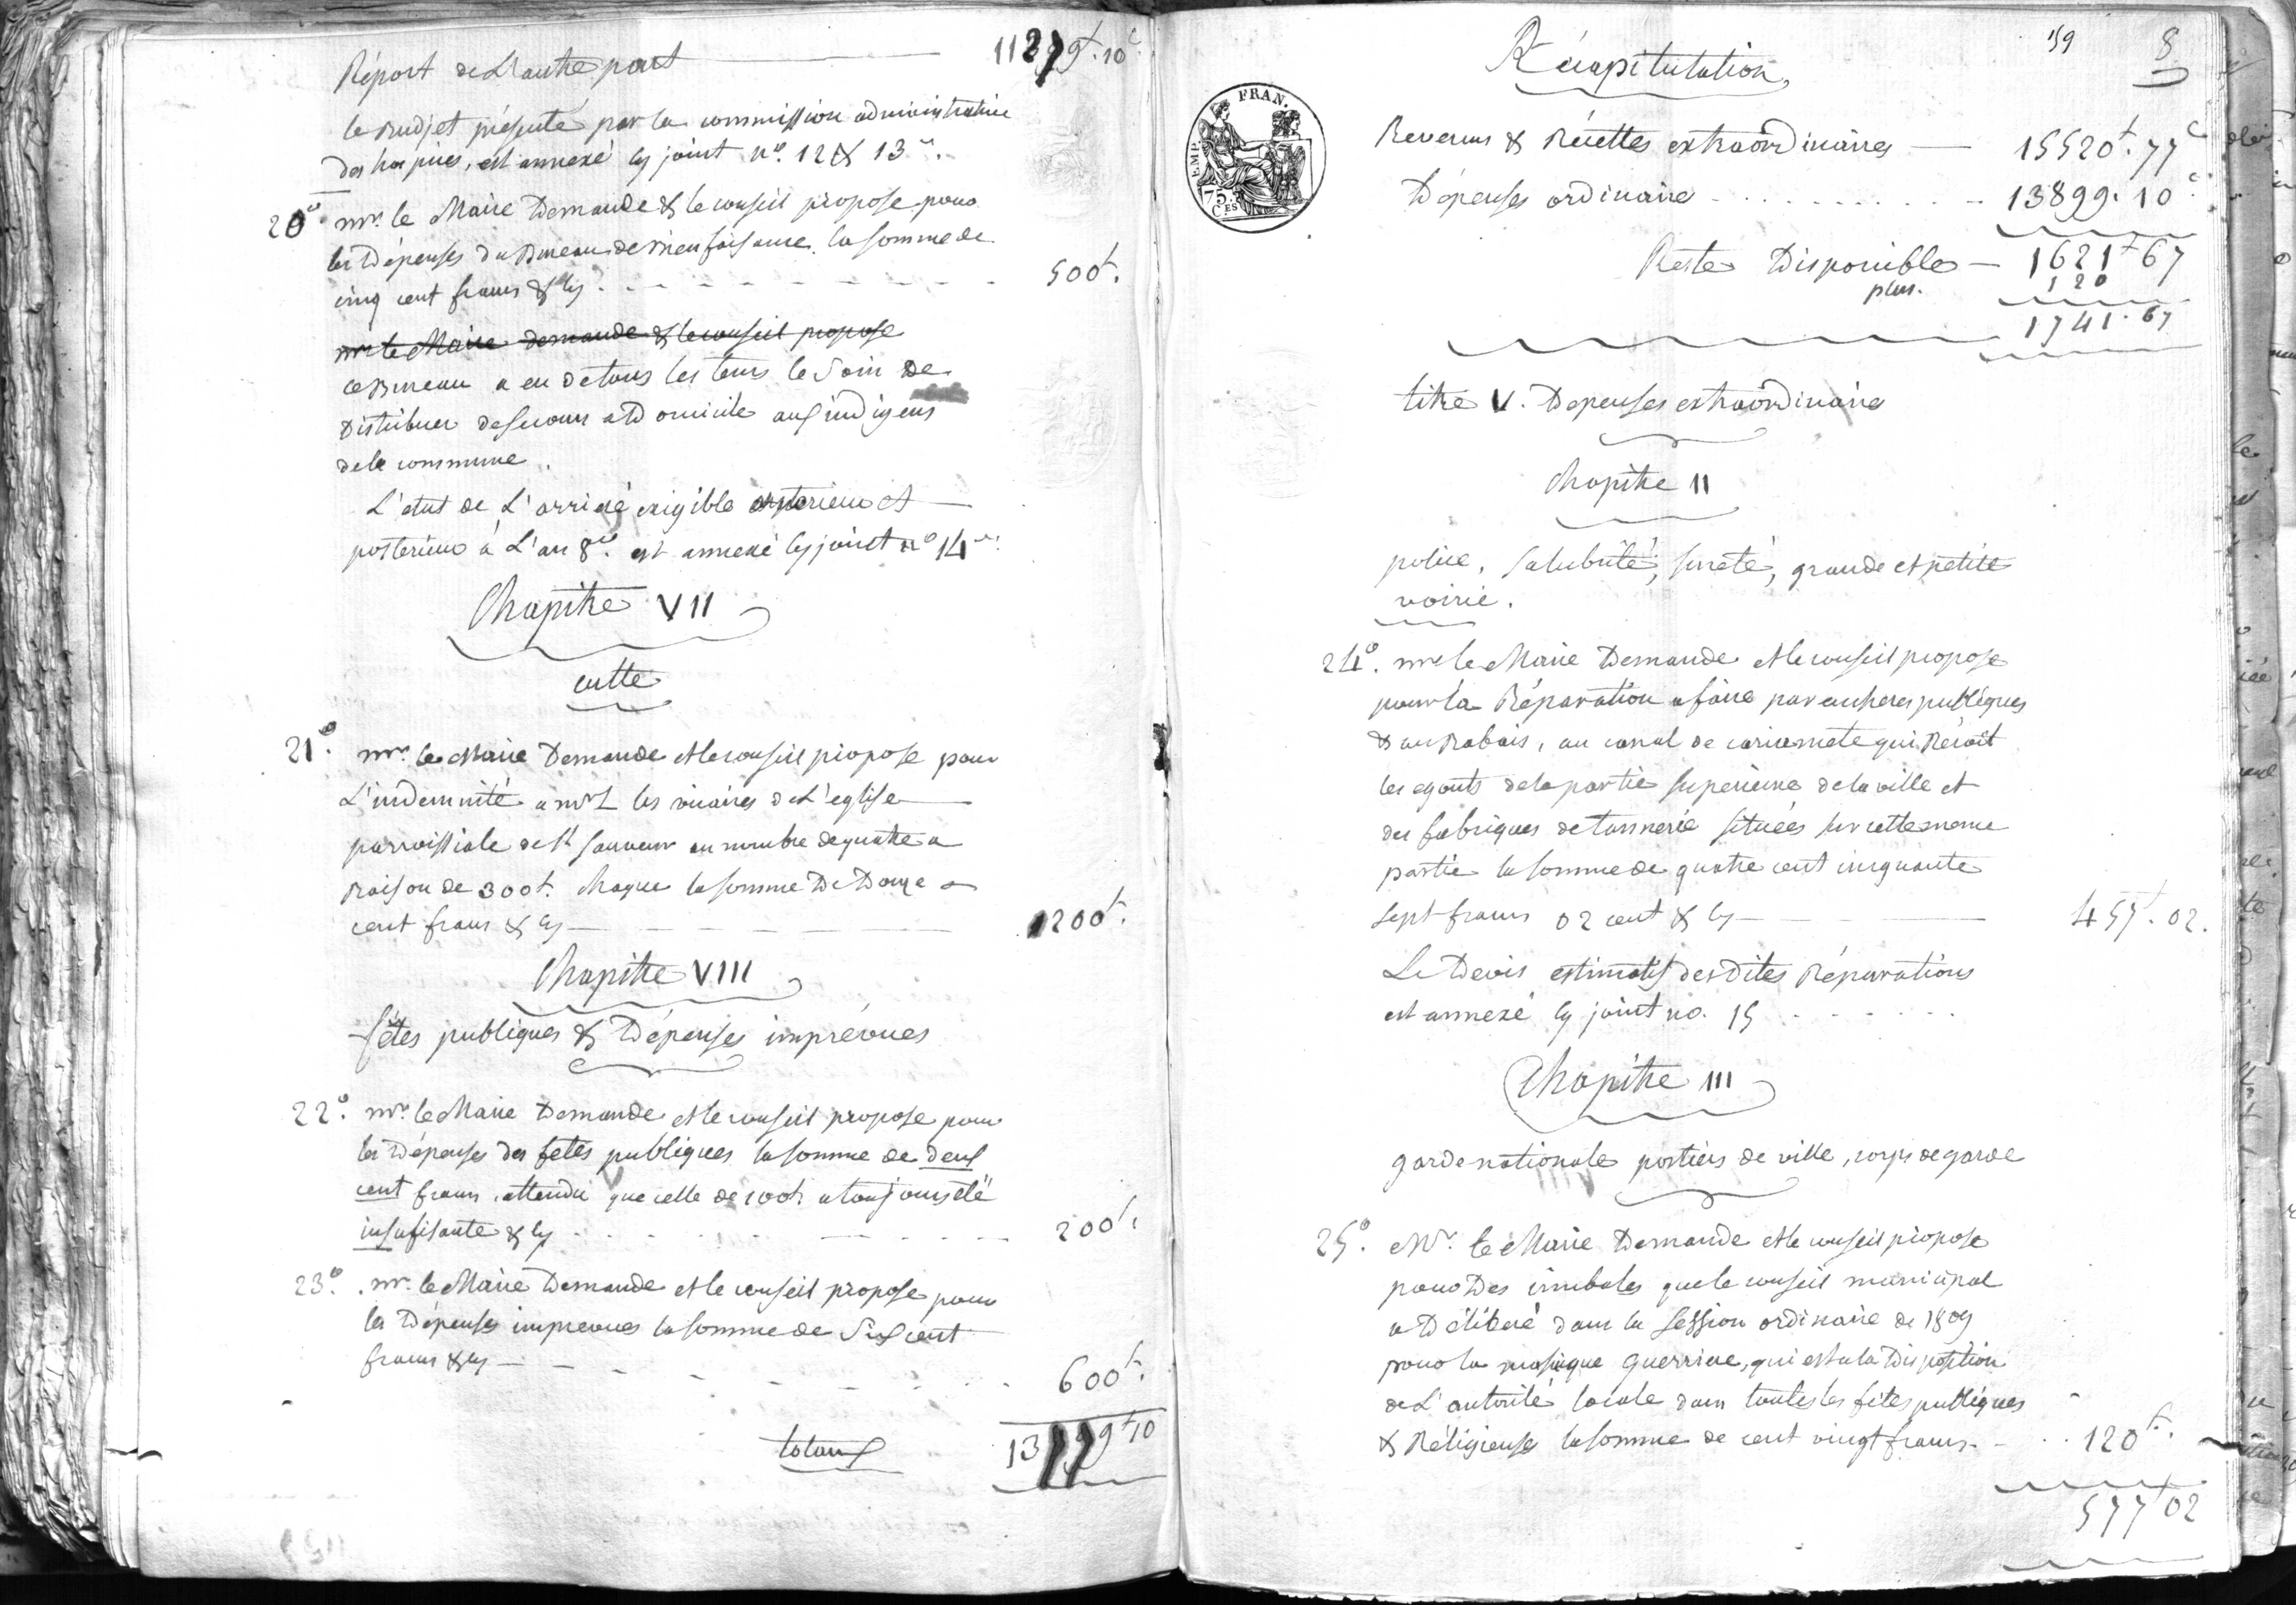 Réport de L'autre part 11279ᶠ.10ᶜ
le Budjet présenté par la commission administrative
des hospices, est annexé cy joint nº. 12 & 13.
20º mr. le Maire Demande & le conseil propose pour
les Dépenses du Bureau de Bienfaisance la somme de
cinq cent francs & cy 500ᶠ.
mr le Maire demande & le conseil propose
ce Bureau a eu de tous les tems le Soin de
Distribuer des secours a Domicile aux indigens
de la commune.
L'etat de L'arrieré exigible anterieur et
posterieur à L'an 8º. est annexé cy joint nº 14
Chapitre VII
culte
21º. mr. le Maire Demande et le conseil propose pour
L'indemnité a mrs les vicaires de L'eglise
parroissiale de St Sauveur au nombre de quatre a
Raison de 300ᶠ. chaque la somme De Douze
cent francs & cy 1200ᶠ.
Chapitre VIII
fêtes publiques & Dépenses imprévues
22º. mr. le Maire Demande et le conseil propose pour
les Dépenses des fetes publiques la somme de deux
cent francs, attendu que celle de 100ᶠ. a toujours été
insufisante & cy 200ᶠ.
23º. mr. le Maire Demande et le conseil propose pour
les Dépenses imprevues la somme de Six cent
francs & cy 600ᶠ.
totaux 13 99ᶠ10
59 8
Récapitulation
EMP. FRAN.
75 CES
Revenus & Récettes extraordinaires 15520ᶠ.77ᶜ
Dépenses ordinaire 13899.10ᶜ
Reste Disponible 1621ᶠ67
plus. 120
1741.67
titre V. Depenses extraordinaire
Chapitre II
police, salubrité, sureté, grande et petite
voirie.
24º. mr le Maire Demande et le conseil propose
pour la Réparation a faire par encheres publiques
& au Rabais, au canal de qui Réçoit
les egouts de la partie superieure de la ville et
des fabriques de tannerie situées sur cette meme
partie la somme de quatre cent cinquante
sept francs 02 cent & cy 457ᶠ.02.
Le Devis estimatif desdites Réparations
est annexé cy joint no. 15
Chapitre III
garde nationale portiers de ville, corps de garde
25º. Mr. le Maire Demande et le conseil propose
pour Des cimbales que le conseil municipal
a Déliberé dans la session ordinaire de 1809
pour la musique guerriere, qui est a la Disposition
de L'autorité locale dans toutes les fêtes publiques
& Réligieuses la somme de cent vingt francs 120ᶠ.
577ᶠ02